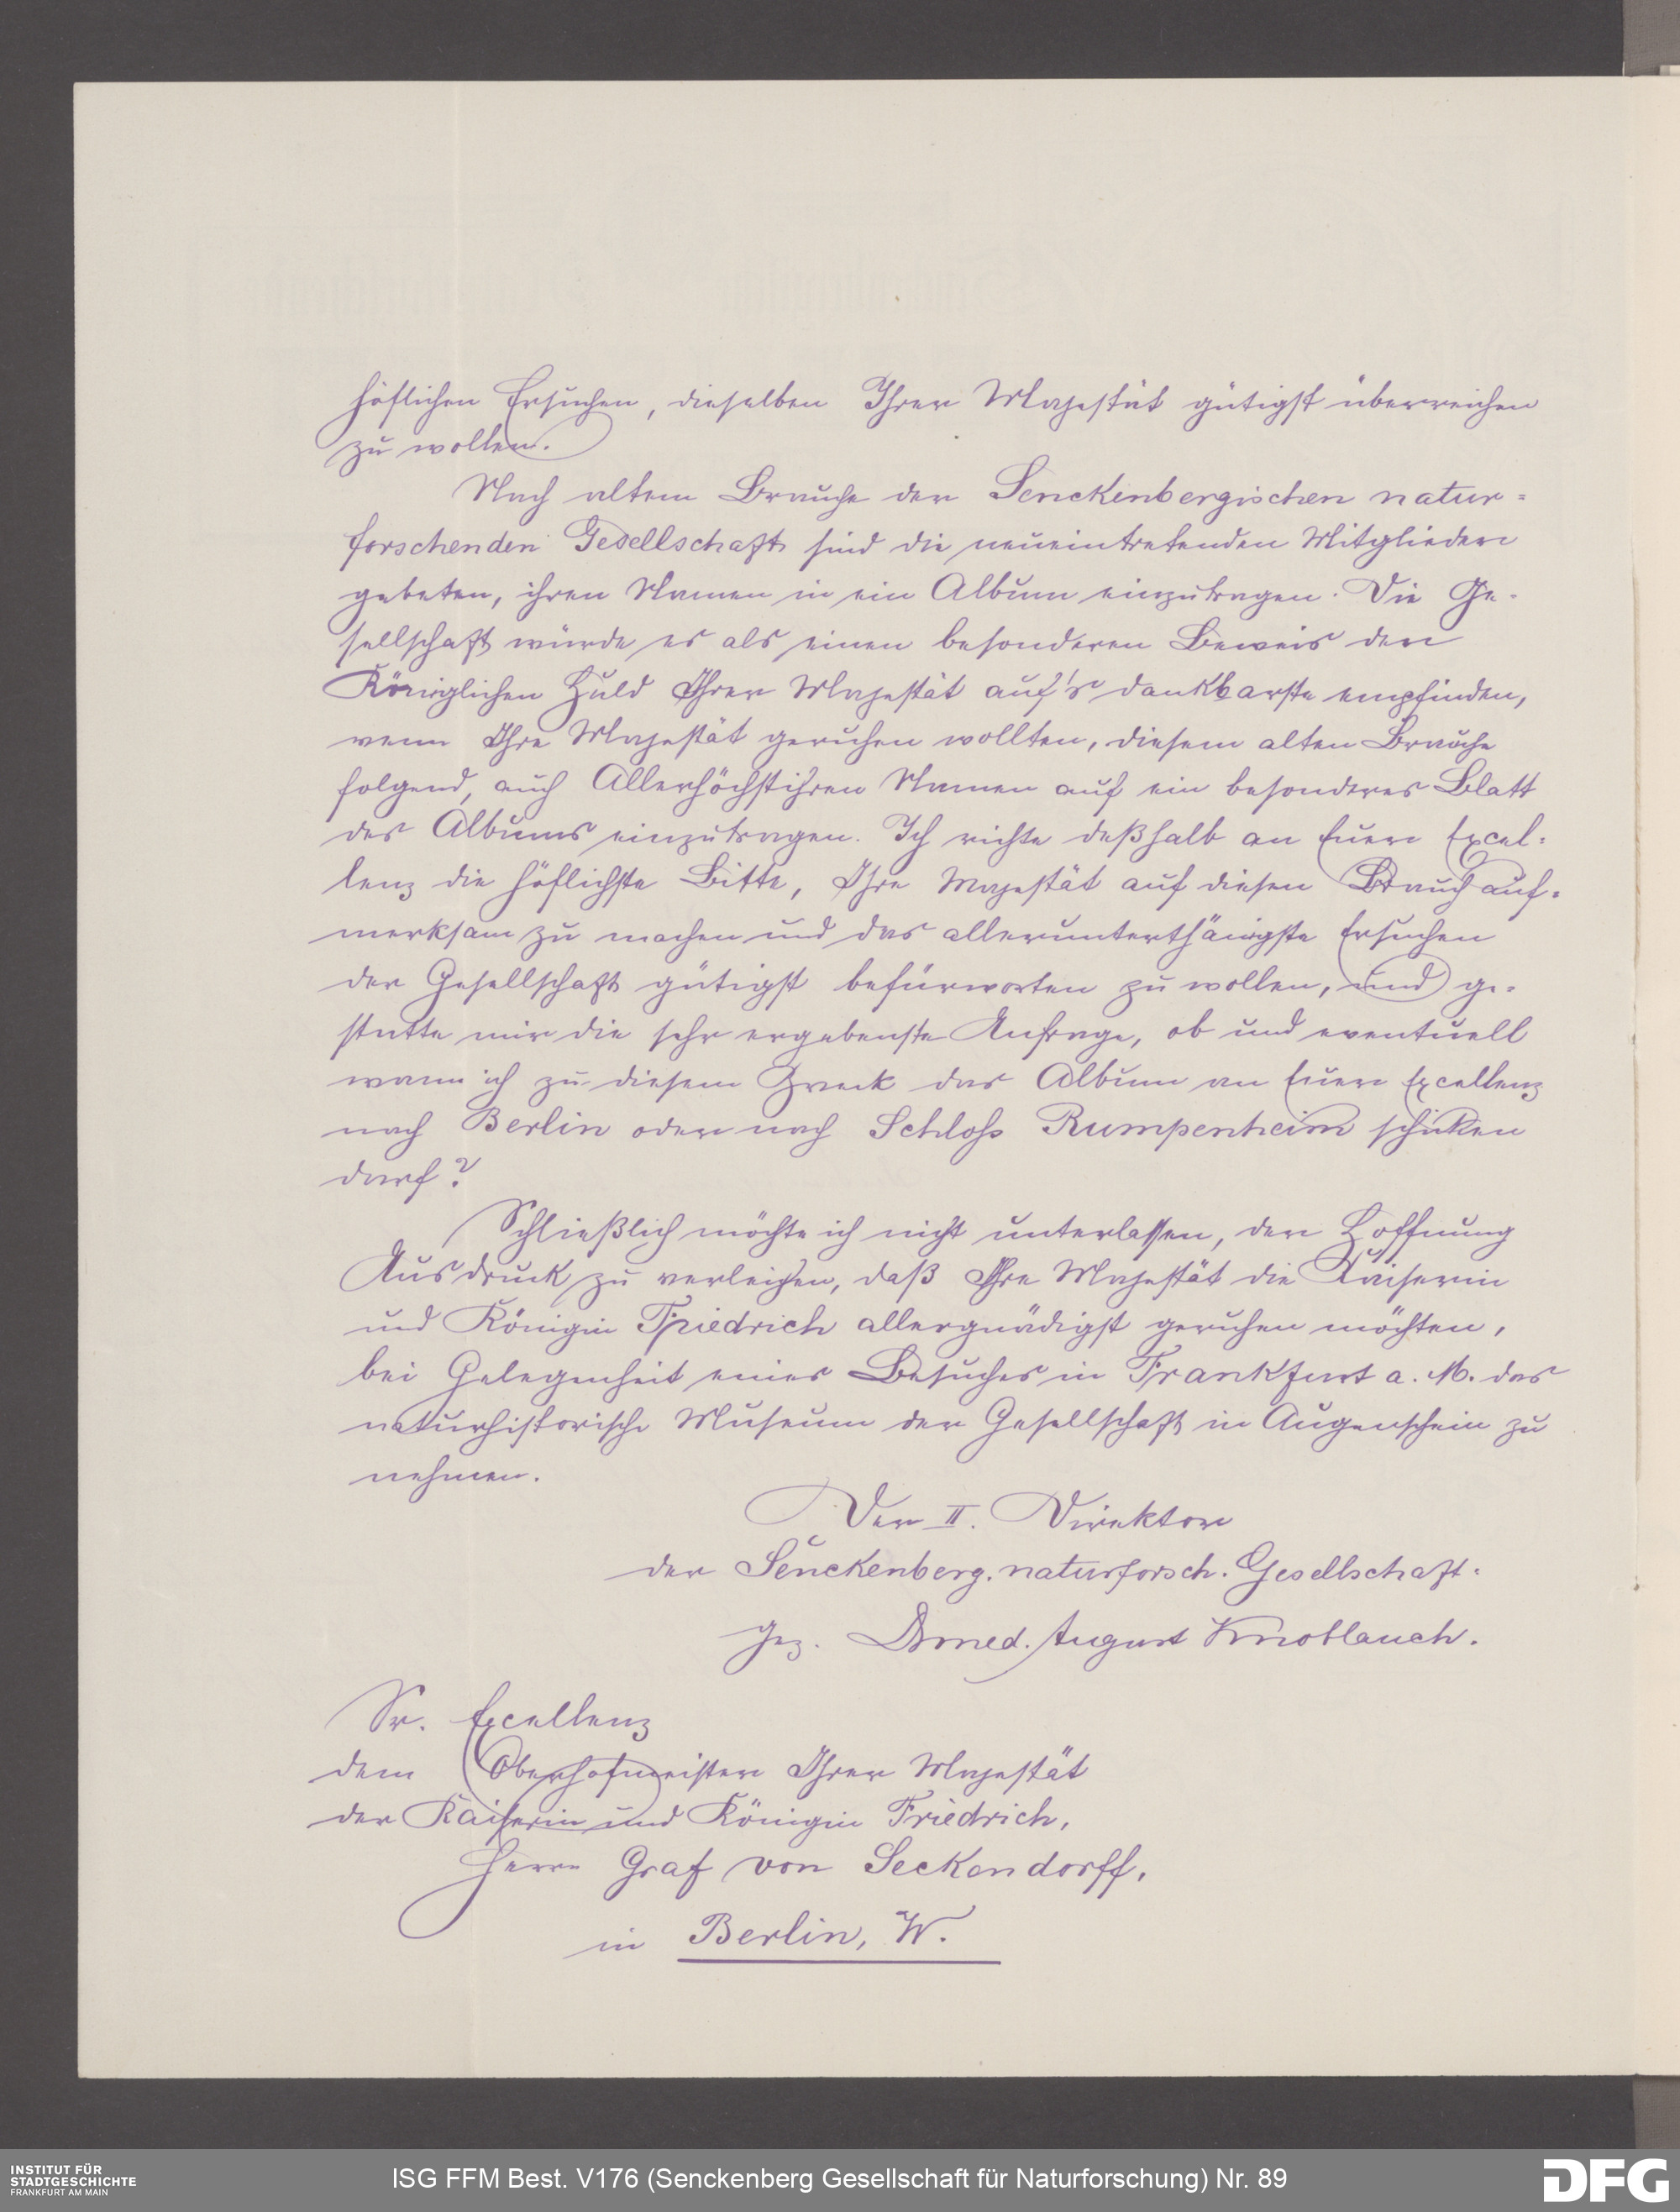 höflichen Ersuchen, dieselben Ihrer Majestät gütigst überreichen
zu wollen.
Nach altem Brauche der Senckenbergischen natur=
forschenden Gesellschaft sind die neueintretenden Mitglieder
gebeten, ihren Namen in ein Album einzutragen. Die Ge-
sellschaft würde es als einen besonderen Beweis der
Königlichen Huld Ihrer Majestät auf's dankbarste empfinden,
wenn Ihre Majestät geruhen wollten, diesem alten Brauche
folgend, auch Allerhöchstihren Namen auf ein besonderes Blatt
des Albums einzutragen. Ich richte deßhalb an Euere Excel=
lenz die höflichste Bitte, Ihre Majestät auf diesen Brauch auf=
merksam zu machen und das allerunterthänigste Ersuchen
der Gesellschaft gütigst befürworten zu wollen, und ge=
statte mir die sehr ergebenste Anfrage, ob und eventuell
wann ich zu diesem Zweck das Album an Euere Excellenz
nach Berlin oder nach Schloss Rumpenheim schicken
darf?
Schließlich möchte ich nicht unterlassen, der Hoffnung
Ausdruck zu verleihen, daß Ihre Majestät die Kaiserin
und Königin Friedrich allergnädigst geruhen möchten,
bei Gelegenheit eines Besuches in Frankfurt a. M. das
naturhistorische Museum der Gesellschaft in Augenschein zu
nehmen.
Der II. Direktor
der Senckenberg. naturforsch. Gesellschaft.
gez. Dr med. August Knoblauch.
Sr. Excellenz
dem Oberhofmeister Ihrer Majestät
der Kaiserin und Königin Friedrich,
Herrn Graf von Seckendorff,
in Berlin, W.
INSTITUT FÜR
STADTGESCHICHTE
FRANKFURT AM MAIN
ISG FFM Best. V176 (Senckenberg Gesellschaft für Naturforschung) Nr. 89
DFG